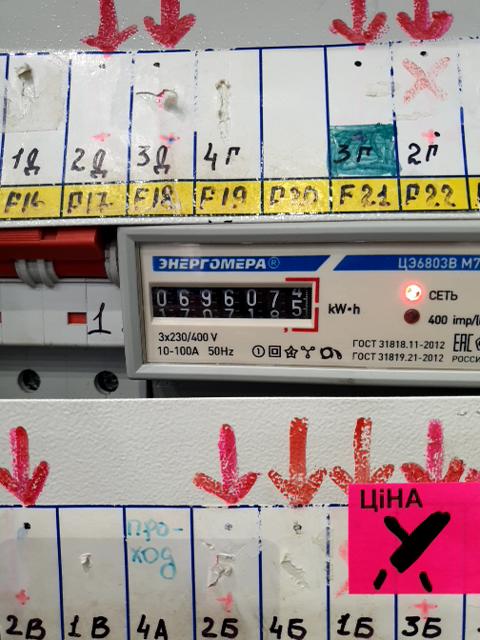 1Д 2Д 3Д 4Г 3Г 2Г
F16 F17 F18 F19 F20 F21 F22
ЭНЕРГОМЕРА® ЦЭ6803В М7
0696075 kW•h
СЕТЬ
400 imp/
1
3x230/400 V
10-100A 50Hz
ГОСТ 31818.11-2012
ГОСТ 31819.21-2012
EAC
РОССИ
ЦіНА
ПРО-
ХОД
2В 1В 4А 2Б 4Б 1Б 3Б